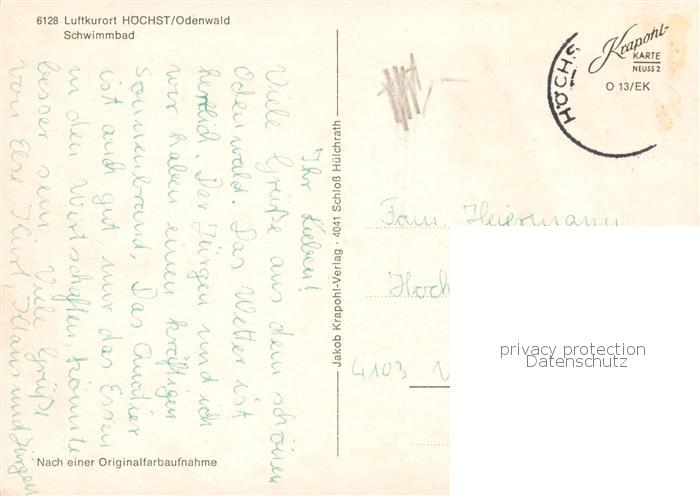 6128 Luftkurort HÖCHST/Odenwald
Schwimmbad
Ihr Lieben!
Viele Grüße aus dem schönen
Odenwald. Das Wetter ist
herrlich. Der Jürgen und ich
wir haben einen kräftigen
Sonnenbrand. Das Quatier
ist auch gut, nur das Essen
in den Wirtschaften, könnte
besser sein. Viele Grüße
von Else Kurt, Klaus und Jürgen
Nach einer Originalfarbaufnahme
Jakob Krapohl-Verlag · 4041 Schloß Hülchrath
HÖCHS
Krapohl-
KARTE
NEUSS 2
O 13/EK
Fam. Heiermann
Hoch
4103
privacy protection
Datenschutz